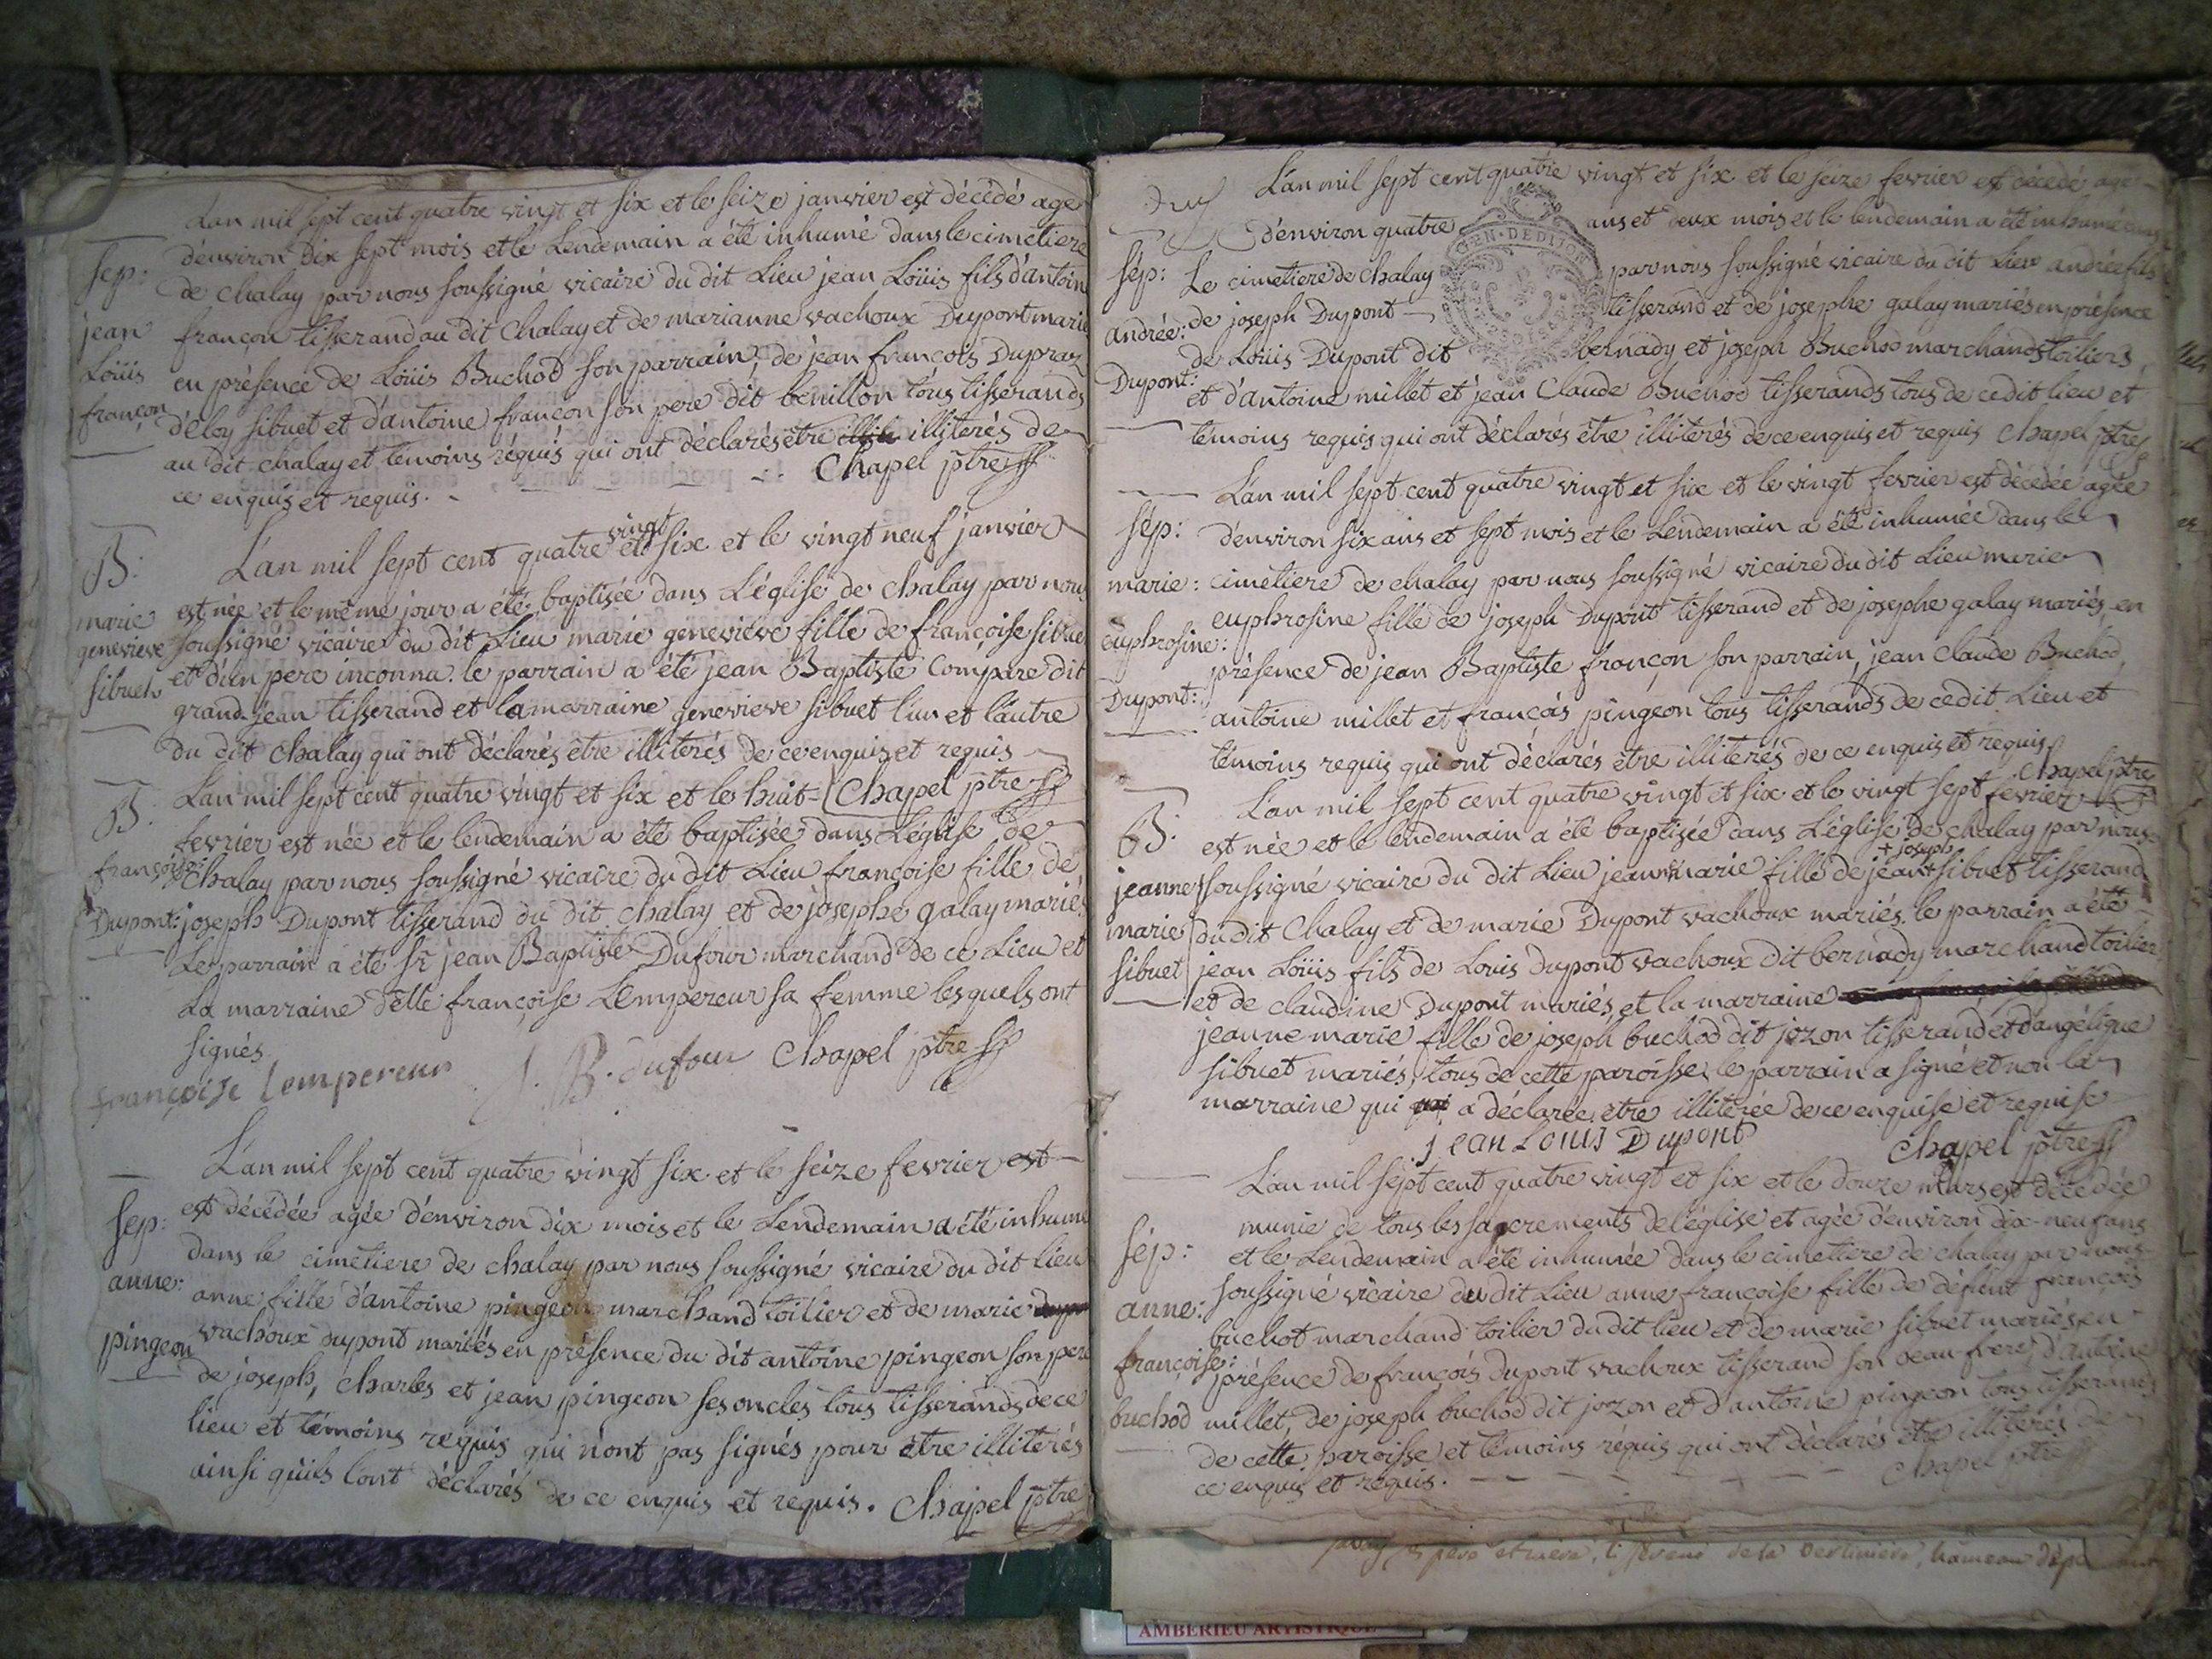 L'an mil sept cent quatre vingt et six et le seize janvier est décédé agé
d'environ dix sept mois et le Lendemain a été inhumé dans le cimetiere
de chalay par nous soussigné vicaire du dit Lieu jean Loüis fils d'antoine
françon tisserand au dit Chalay et de marianne vachoux Dupont mariés
en présence de Loüis Buchod son parrain, de jean françois Dupraz
d'éloy sibuet et d'antoine françon son pere dit benillon tous tisserands
au dit chalay et temoins réquis qui ont déclarés être illiterés de
ce enquis et requis. Chapel ptre
Sep:
jean
Loüis
françon
L'an mil sept cent quatre vingt et six et le vingt neuf janvier
est née et le même jour a été baptisée dans L'église de chalay par nous
soussigné vicaire du dit Lieu marie genevieve fille de françoise sibuet
et d'un pere inconnu. le parrain a été jean Baptiste Compare dit
grand-jean tisserand et la marraine genevieve sibuet l'un et l'autre
du dit chalay qui ont déclarés être illiterés de ce enquis et requis
Chapel ptre
B:
marie
genevieve
sibuet
L'an mil sept cent quatre vingt et six et le huit
fevrier est née et le lendemain a été baptisée dans L'église de
Chalay par nous soussigné vicaire du dit Lieu françoise fille de
joseph Dupont tisserand du dit chalay et de josephe galay mariés
Le parrain a été sr jean Baptiste Dufour marchand de ce Lieu et
La marraine d'elle françoise Lempereur sa femme lesquels ont
signés
françoise Lempereur J. B. dufour Chapel ptre
B:
françoise
Dupont:
L'an mil sept cent quatre vingt six et le seize fevrier est
est décédée agée d'environ dix mois et le Lendemain a été inhumé
dans le cimetiere de chalay par nous soussigné vicaire du dit Lieu
anne fille d'antoine pingeon marchand toilier et de marie
vachoux dupont mariés en présence du dit antoine pingeon son pere
de joseph, Charles et jean pingeon ses oncles tous tisserands de ce
lieu et témoins réquis qui n'ont pas signés pour être illiterés
ainsi qu'ils l'ont déclarés de ce enquis et requis. Chapel ptre
Sep:
anne:
pingeon
L'an mil sept cent quatre vingt et six et le seize fevrier est décédé agé
d'environ quatre ans et deux mois et le lendemain a été inhumé dans
Le cimetiere de Chalay par nous soussigné vicaire du dit Lieu andrée fils
de joseph Dupont tisserand et de josephe galay mariés en présence
de Loüis Dupont dit bernady et joseph Buchod marchands toiliers,
et d'antoine millet et jean Claude Buchod tisserands tous de ce dit lieu et
témoins requis qui ont déclarés être illiterés de ce enquis et requis Chapel ptre
GEN. DE DIJON
Sép:
andrée:
Dupont:
L'an mil sept cent quatre vingt et six et le vingt fevrier est décédée agée
d'environ six ans et sept mois et le Lendemain a été inhumée dans le
cimetiere de chalay par nous soussigné vicaire du dit Lieu marie
euphrosine fille de joseph Dupont tisserand et de josephe galay mariés en
présence de jean Baptiste françon son parrain, jean claude Buchod,
antoine millet et françois pingeon tous tisserands de ce dit Lieu et
témoins requis qui ont déclarés être illiterés de ce enquis et requis
Chapel ptre
Sép:
marie:
euphrosine:
Dupont:
L'an mil sept cent quatre vingt et six et le vingt sept fevrier
est née et le lendemain a été baptisée dans L'église de chalay par nous
soussigné vicaire du dit Lieu jeanne marie fille de jean + joseph sibuet tisserand
du dit Chalay et de marie Dupont vachoux mariés, le parrain a été
jean Loüis fils de Louis dupont vachoux dit bernady marchand toilier
et de claudine Dupont mariés, et la marraine
jeanne marie fille de joseph buchod dit jozon tisserand et d'angélique
sibuet mariés, tous de cette paroisse, le parrain a signé et non la
marraine qui a déclarée être illiterée de ce enquise et requise
jean Louis Dupont Chapel ptre
B:
jeanne
marie
sibuet
L'an mil sept cent quatre vingt et six et le douze mars est décédée
munie de tous les sacrements de l'église et agée d'environ dix-neuf ans
et le Lendemain a été inhumée dans le cimetiere de chalay par nous
soussigné vicaire du dit Lieu anne françoise fille de défunt françois
buchot marchand toilier du dit lieu et de marie sibuet mariés en
présence de françois dupont vachoux tisserand son beau-frere, d'antoine
millet, de joseph buchod dit jozon et d'antoine pingeon tous tisserands
de cette paroisse et témoins réquis qui ont déclarés être illiterés de
ce enquis et requis. Chapel ptre
Sép:
anne:
françoise:
buchod
AMBERIEU ARTISTIQUE